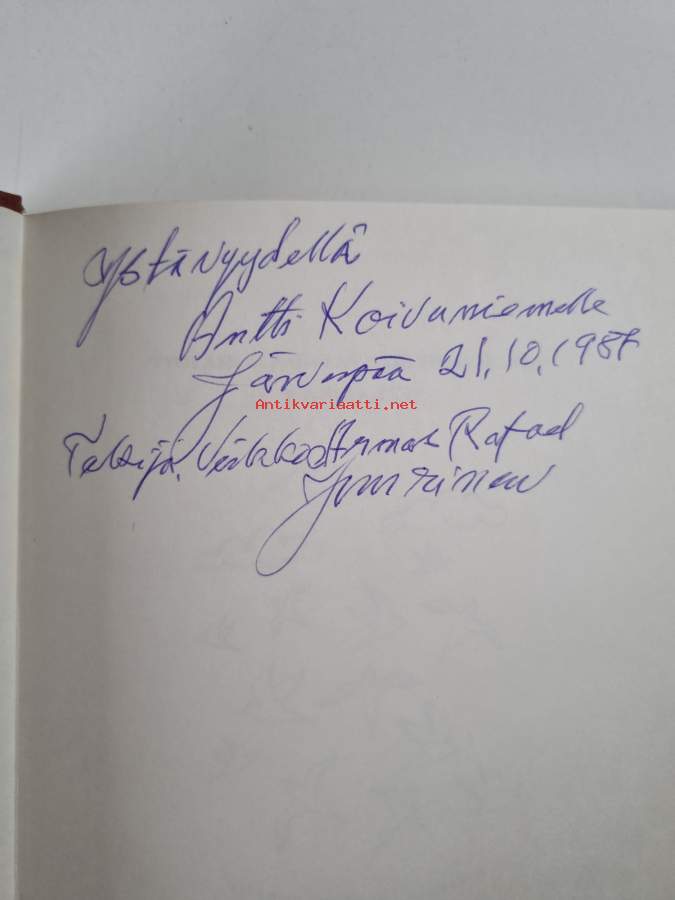 Ystävyydellä
Antti Koivuniemelle
Järvenpää 21.10.1987
Antikvariaatti.net
Tekijä. Veikko Armas Rafael